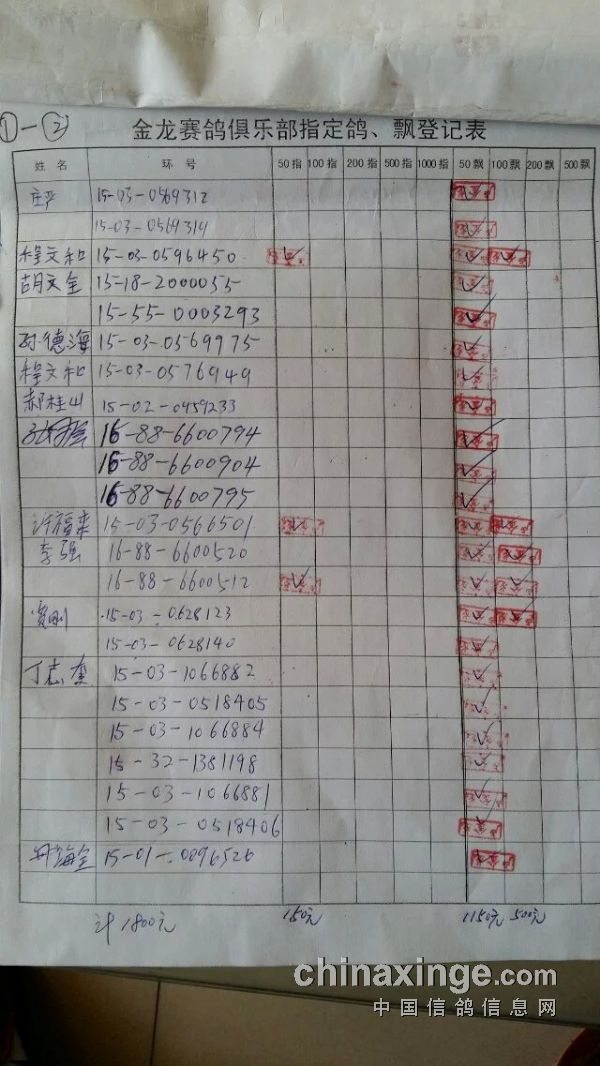 ①-②
金龙赛鸽俱乐部指定鸽、飘登记表
姓名 环号 50指 100指 200指 500指 1000指 50飘 100飘 200飘 500飘
庄严 15-03-0569312
15-03-0569314
程文和 15-03-0596450
胡文全 15-18-2000055
15-55-0003293
孙德海 15-03-0569975
程文和 15-03-0576949
郝桂山 15-02-0459233
16-88-6600794
16-88-6600904
16-88-6600795
许福来 15-03-0566501
李强 16-88-6600520
16-88-6600512
15-03-0628123
15-03-0628140
丁志奎 15-03-1066882
15-03-0518405
15-03-1066884
15-32-1381198
15-03-1066881
15-03-0518406
15-01-0896526
计1800元 150元 1150元 500元
chinaxinge.com
中国信鸽信息网